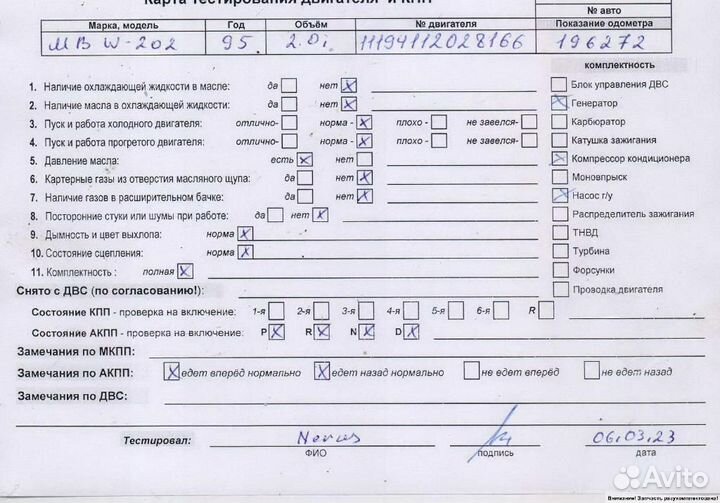 Карта тестирования двигателя и КПП
№ авто
Марка, модель Год Объём № двигателя Показание одометра
MB W-202 95 2.0i 11194112028166 196272
комплектность
1. Наличие охлаждающей жидкости в масле: да нет x
Блок управления ДВС
2. Наличие масла в охлаждающей жидкости: да нет x
x Генератор
3. Пуск и работа холодного двигателя: отлично- норма - x плохо - не завелся-
Карбюратор
4. Пуск и работа прогретого двигателя: отлично- норма - x плохо - не завелся-
Катушка зажигания
5. Давление масла: есть x нет
x Компрессор кондиционера
6. Картерные газы из отверстия масляного щупа: да нет x
Моновпрыск
7. Наличие газов в расширительном бачке: да нет x
x Насос г/у
8. Посторонние стуки или шумы при работе: да нет x
Распределитель зажигания
9. Дымность и цвет выхлопа: норма x
ТНВД
10. Состояние сцепления: норма x
Турбина
11. Комплектность : полная x
Форсунки
Снято с ДВС (по согласованию!):
Проводка двигателя
Состояние КПП - проверка на включение: 1-я 2-я 3-я 4-я 5-я 6-я R
Состояние АКПП - проверка на включение: P x R x N x D x
Замечания по МКПП:
Замечания по АКПП: x едет вперёд нормально x едет назад нормально не едет вперёд не едет назад
Замечания по ДВС:
Тестировал: 06.03.23
ФИО подпись дата
Avito
Внимание! Запчасть разукомплектована!